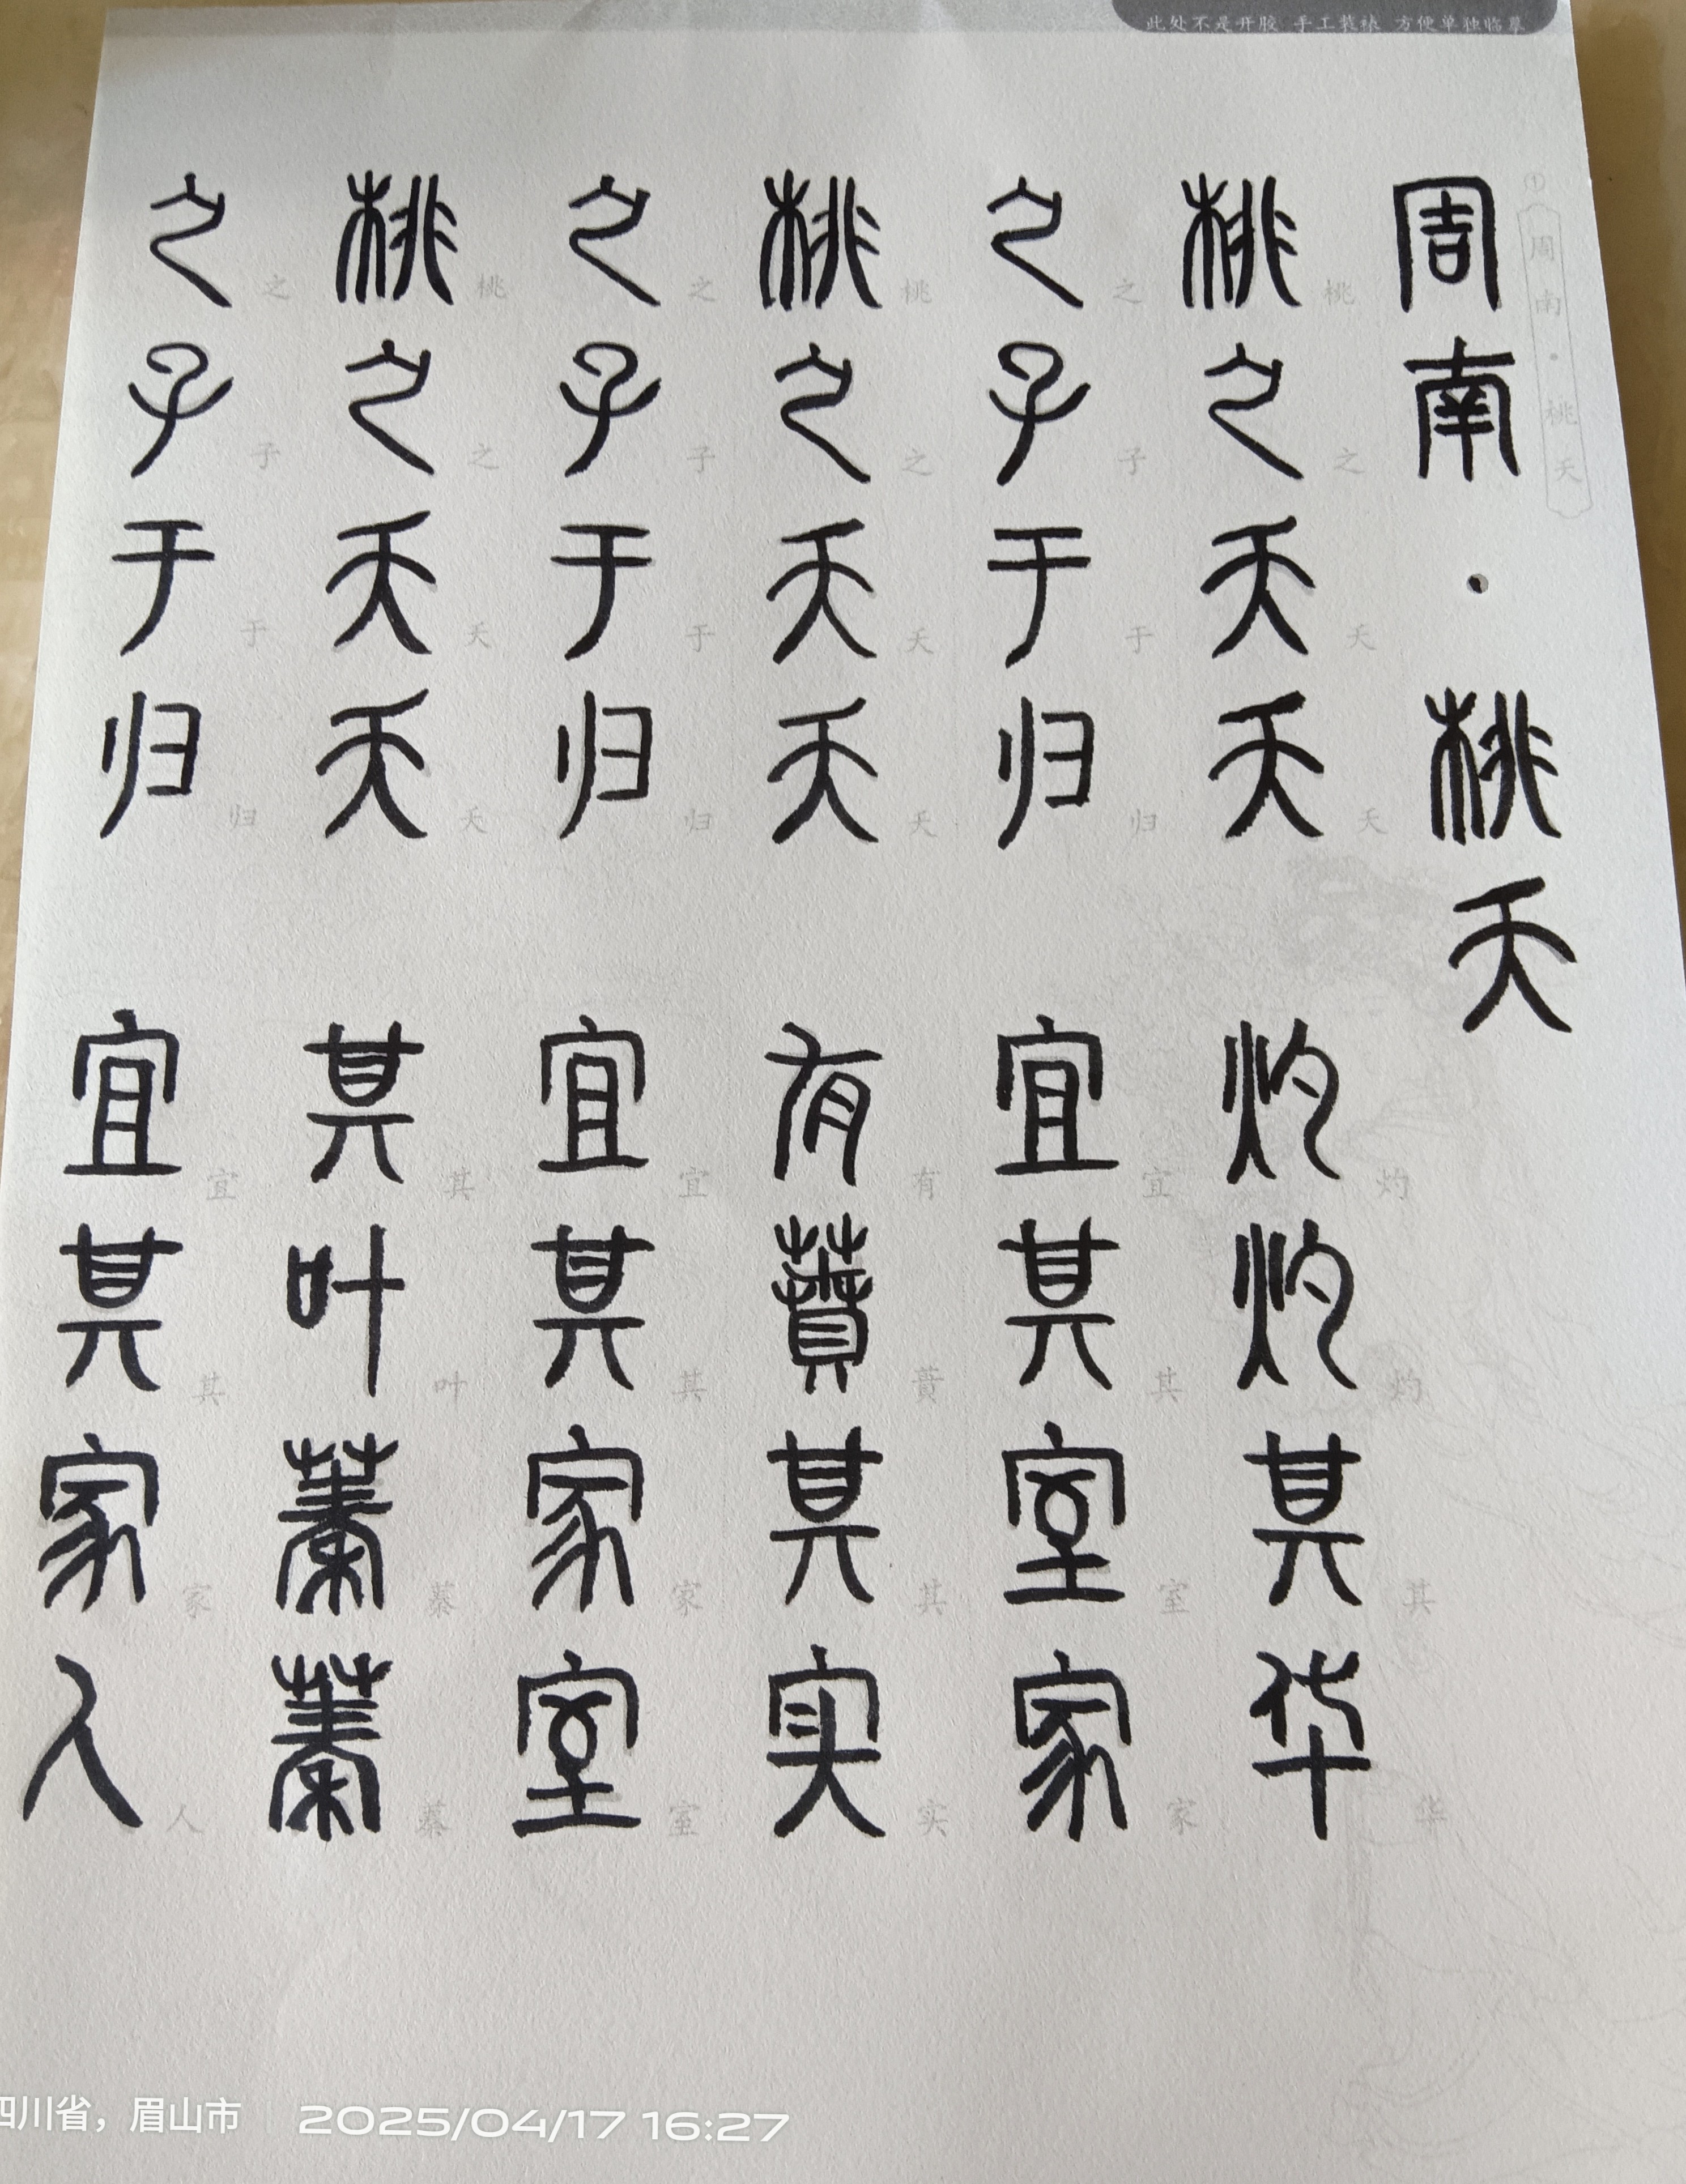 此处不是开胶 手工装裱 方便单独临摹
①
周南·桃夭
周南·桃夭
桃之夭夭 灼灼其华
桃之夭夭 灼灼其华
之子于归 宜其室家
之子于归 宜其室家
桃之夭夭 有蕡其实
桃之夭夭 有蕡其实
之子于归 宜其家室
之子于归 宜其家室
桃之夭夭 其叶蓁蓁
桃之夭夭 其叶蓁蓁
之子于归 宜其家人
之子于归 宜其家人
四川省，眉山市 2025/04/17 16:27